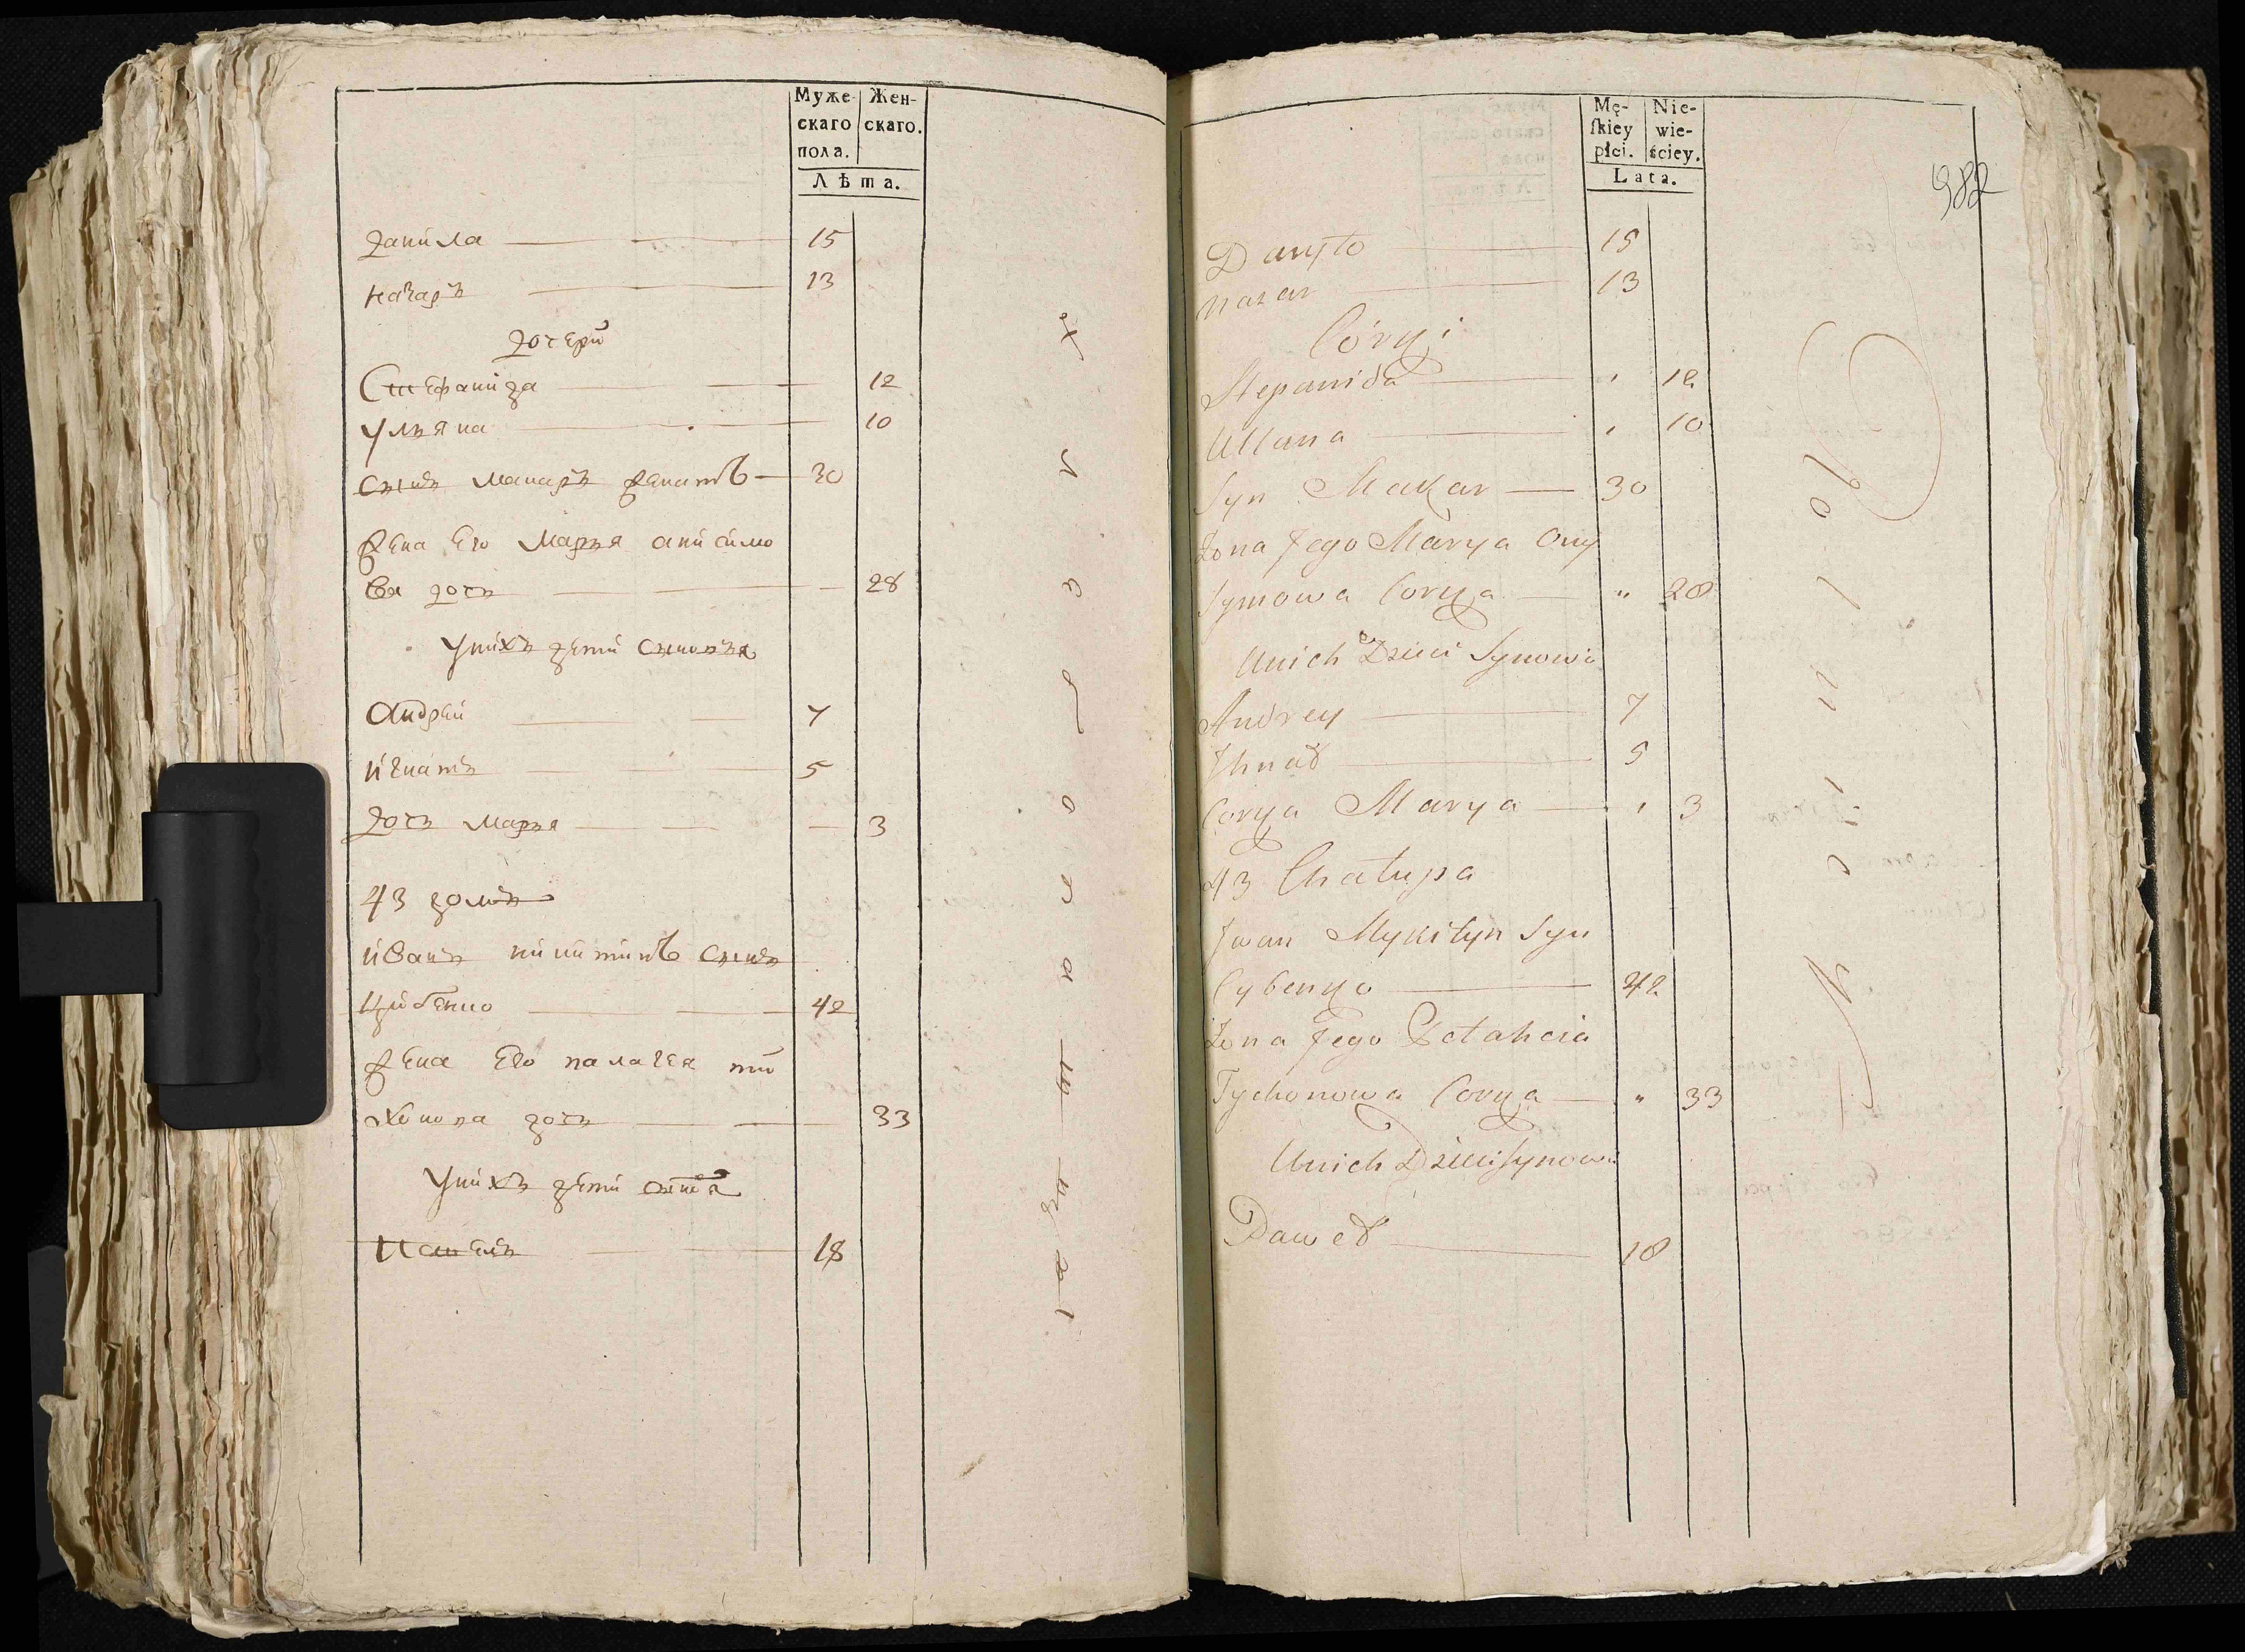 Муже- Жен-
скаго скаго.
пола.
Лѣта.
данила 15
назаръ 13
дочери
Стефанида 12
Ульяна 10
сынъ макаръ женатъ 30
жена его марья анисимо
ва дочь 28
У нихъ дети сыновья
андрей 7
игнатъ 5
дочь марья 3
43 домъ
иванъ никитинъ сынъ
цибенко 42
жена его палагея ти
хонова дочь 33
У нихъ дети
18
Mę- Nie-
ſkiey wie-
płci. ściey.
Lata.
982
Danyło 15
Nazar 13
Córki
Stepanida " 12
Ullana " 10
Syn Makar 30
Żona Jego Marya Ony
Symowa Corka " 28
Unich Dzieci Synowie
Andrey 7
Ihnad 5
Corka Marya " 3
43 Chałupa
Jwan Mykityn Syn
Cybenko 42
Żona Jego Pelaheia
Tychonowa Corka " 33
Unich Dzieci Synowie
Dawed 18